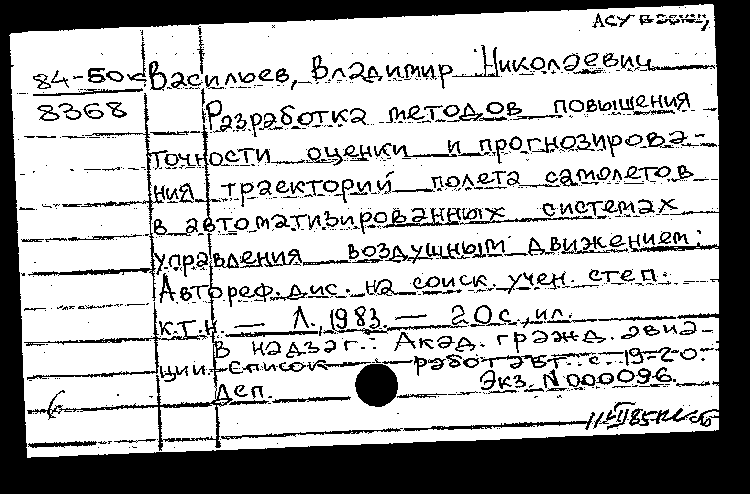 АСУ
84-50к Васильев, Владимир Николаевич
8368 Разработка методов повышения
точности оценки и прогнозирова-
ния траекторий полета самолетов
в автоматизированных системах
управления воздушным движением:
Автореф. дис. на соиск. учен. степ.
к.т.н. — Л., 1983. — 20 с., ил.
В надзаг.: Акад. гражд. авиа-
ции. Список работ авт.: с. 19-20.
Деп. Экз. N000096.